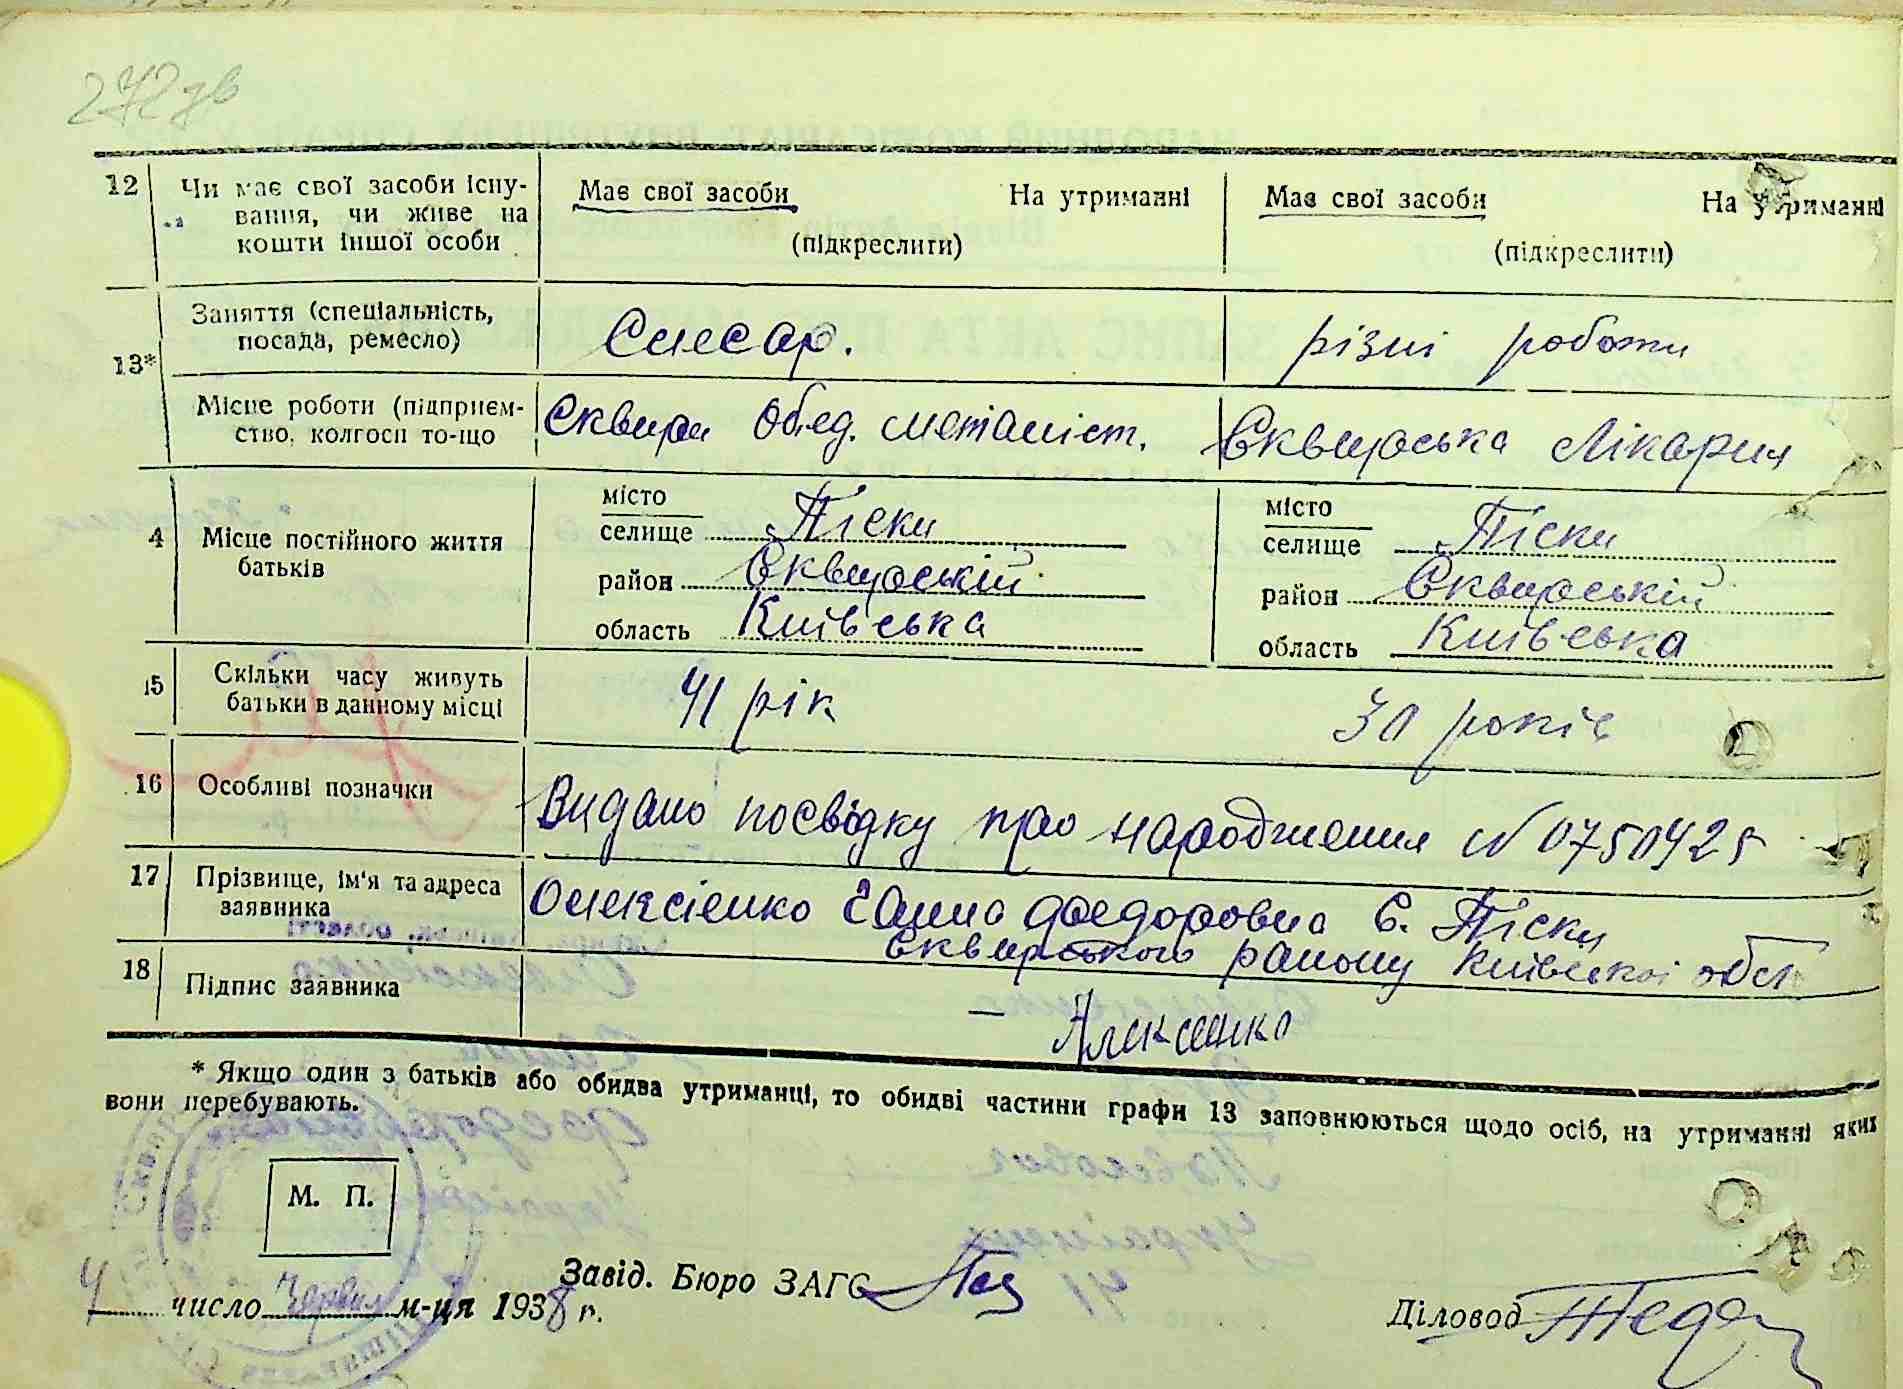 272зв
12 Чи має свої засоби існу-
вання, чи живе на
кошти іншої особи
Має свої засоби На утриманні
(підкреслити)
Має свої засоби На утриманні
(підкреслити)
13* Заняття (спеціальність,
посада, ремесло)
Слесар.
різні роботи
Місце роботи (підприєм-
ство, колгосп то-що
Сквири Обед. металіст.
Сквирська Лікарня
4 Місце постійного життя
батьків
місто
селище Піски
район Сквирській
область Київська
місто
селище Піски
район Сквирській
область Київська
15 Скільки часу живуть
батьки в данному місці
41 рік
30 років
16 Особливі позначки
Видано посвідку про народження N 0750425
17 Прізвище, ім'я та адреса
заявника
Олексієнко Ганна Федоровна с. Піски
Сквирського району Київської обл
18 Підпис заявника
Алексенко
* Якщо один з батьків або обидва утриманці, то обидві частини графи 13 заповнюються щодо осіб, на утриманні яких
вони перебувають.
М. П.
4 число Червня м-ця 1938 г.
Завід. Бюро ЗАГС
Діловод